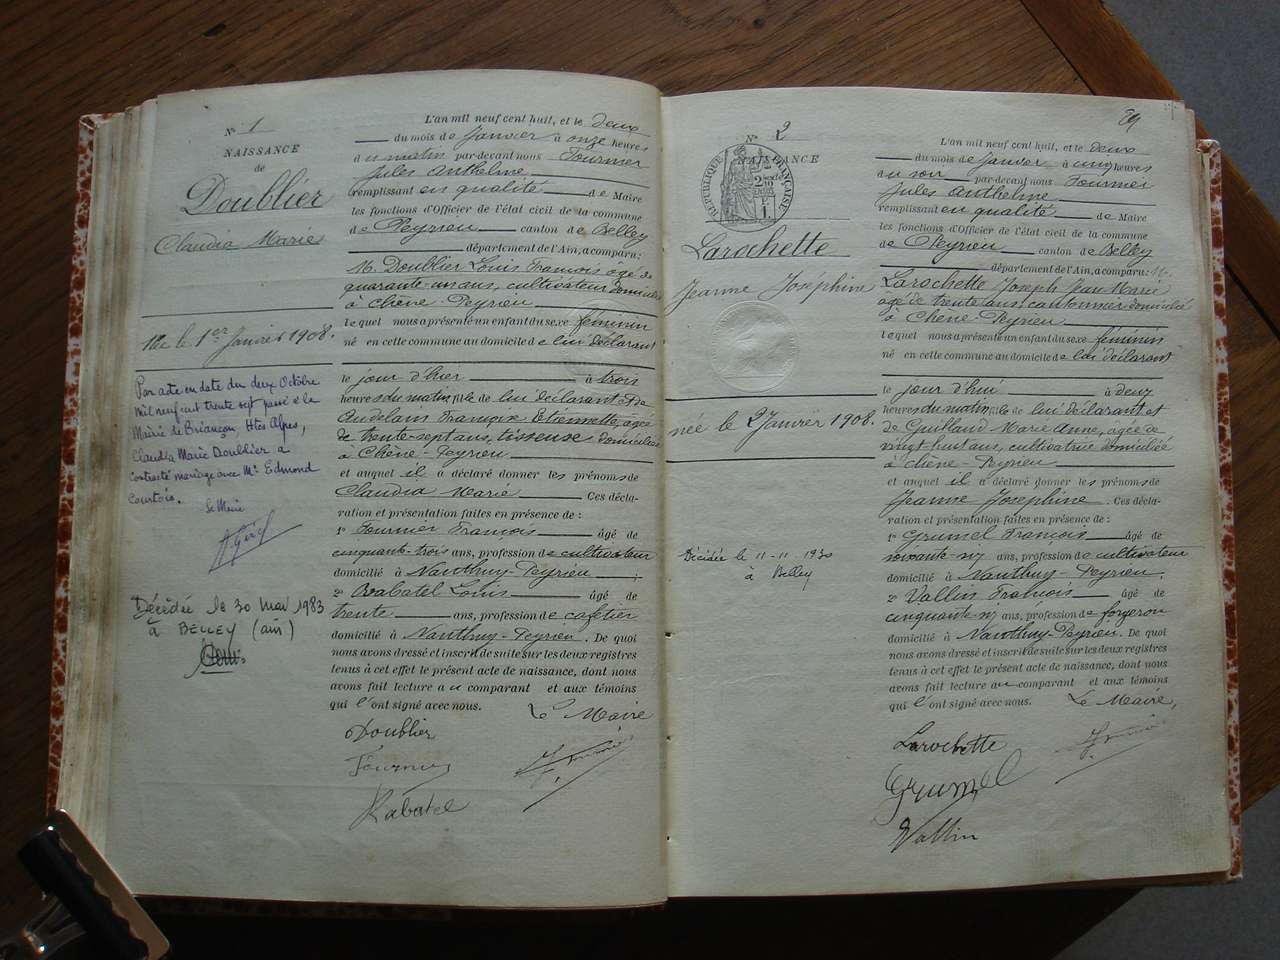 Nº 1
NAISSANCE
de
Doublier
Claudia Marie
Née le 1er Janvier 1908.
Par acte en date du deux Octobre
mil neuf cent trente sept passé à la
Mairie de Briançon, Htes Alpes,
Claudia Marie Doublier a
contracté mariage avec Mr Edmond
Courtois.
Le Maire
Décédée le 30 Mai 1983
à BELLEY (ain)
L'an mil neuf cent huit, et le deux
du mois de Janvier à onze heures
du matin par-devant nous Fournier
Jules Anthelme
remplissant en qualité de Maire
les fonctions d'Officier de l'état civil de la commune
de Peyrieu canton de Belley
département de l'Ain, a comparu:
M. Doublier Louis François âgé de
quarante-un ans, cultivateur domicilié
à Chêne-Peyrieu
lequel nous a présenté un enfant du sexe féminin
né en cette commune au domicile de lui déclarant
le jour d'hier à trois
heures du matin, fils de lui déclarant et de
Françoise Etiennette, âgée
de trente-sept ans, tisseuse domiciliée
à Chêne-Peyrieu
et auquel il a déclaré donner les prénoms de
Claudia Marie Ces décla-
ration et présentation faites en présence de :
1º Fournier François âgé de
cinquante-trois ans, profession de cultivateur
domicilié à Nanthuy-Peyrieu ;
2º Rabatel Louis âgé de
trente ans, profession de cafetier
domicilié à Nanthuy-Peyrieu. De quoi
nous avons dressé et inscrit de suite sur les deux registres
tenus à cet effet le présent acte de naissance, dont nous
avons fait lecture au comparant et aux témoins
qui l'ont signé avec nous. Le Maire
Doublier
Fournier
Rabatel
89
Nº 2
NAISSANCE
RÉPUBLIQUE FRANÇAISE
Larochette
Jeanne Joséphine
née le 2 Janvier 1908.
Décédée le 11-11-1930
à Belley
L'an mil neuf cent huit, et le deux
du mois de Janvier à cinq heures
du soir par-devant nous Fournier
Jules Anthelme
remplissant en qualité de Maire
les fonctions d'Officier de l'état civil de la commune
de Peyrieu canton de Belley
département de l'Ain, a comparu: M.
Larochette Joseph Jean Marie
âgé de trente ans, cantonnier domicilié
à Chêne-Peyrieu
lequel nous a présenté un enfant du sexe féminin
né en cette commune au domicile de lui déclarant
le jour d'hui à deux
heures du matin, fils de lui déclarant et
de Guilland Marie Anne, âgée de
vingt huit ans, cultivatrice domiciliée
à Chêne-Peyrieu
et auquel il a déclaré donner les prénoms de
Jeanne Joséphine. Ces décla-
ration et présentation faites en présence de :
1º Grumel François âgé de
ans, profession de cultivateur
domicilié à Nanthuy-Peyrieu.
2º Vallin François âgé de
ans, profession de forgeron
domicilié à Nanthuy-Peyrieu. De quoi
nous avons dressé et inscrit de suite sur les deux registres
tenus à cet effet le présent acte de naissance, dont nous
avons fait lecture au comparant et aux témoins
qui l'ont signé avec nous. Le Maire,
Larochette
Grumel
Vallin